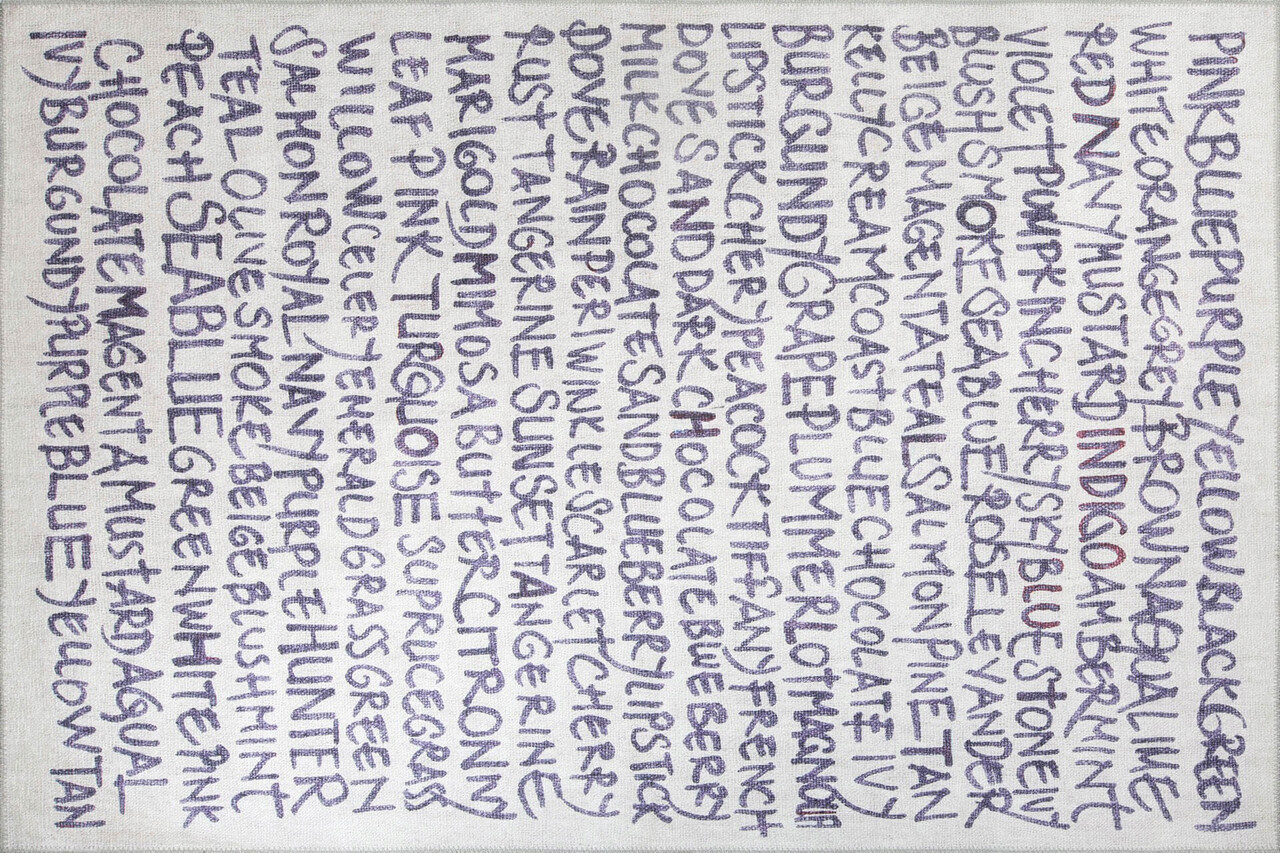 PINKBLUEPURPLEYELLOWBLACKGREEN
WHITEORANGEGREYBROWNAQUALIME
REDNAVYMUSTARDINDIGOAMBERMINT
VIOLETPUMPKINCHERRYSKYBLUESTONEIVY
BLUSHSMOKESEABLUEROSELEVANDER
BEIGEMAGENTATEALSALMONPINETAN
KELLYCREAMCOASTBLUECHOCOLATEIVY
BURGUNDYGRAPEPLUMMERLOTMAGNOLIA
LIPSTICKCHERYPEACOCKTIFFANYFRENCH
DOVESANDDARKCHOCOLATEBWEBERRY
MILKCHOCOLATESANDBLUEBERRYLIPSTICK
DOVERAINPERIWINKLESCARLETCHERRY
RUSTTANGERINESUNSETTANGERINE
MARIGOLDMIMOSABUTTERCITRONIVY
LEAF PINK TURQUOISE SUPRUCEGRASS
WILLOWCELERYEMERALDGRASSGREEN
SALMONROYALNAVYPURPLEHUNTER
TEALOLIVESMOKEBEIGEBLUSHMINT
PEACHSEABLUEGREENWHITEPINK
CHOCOLATEMAGENTAMUSTARDAQUAL
IVYBURGUNDYPURPLEBLUEYELLOWTAN